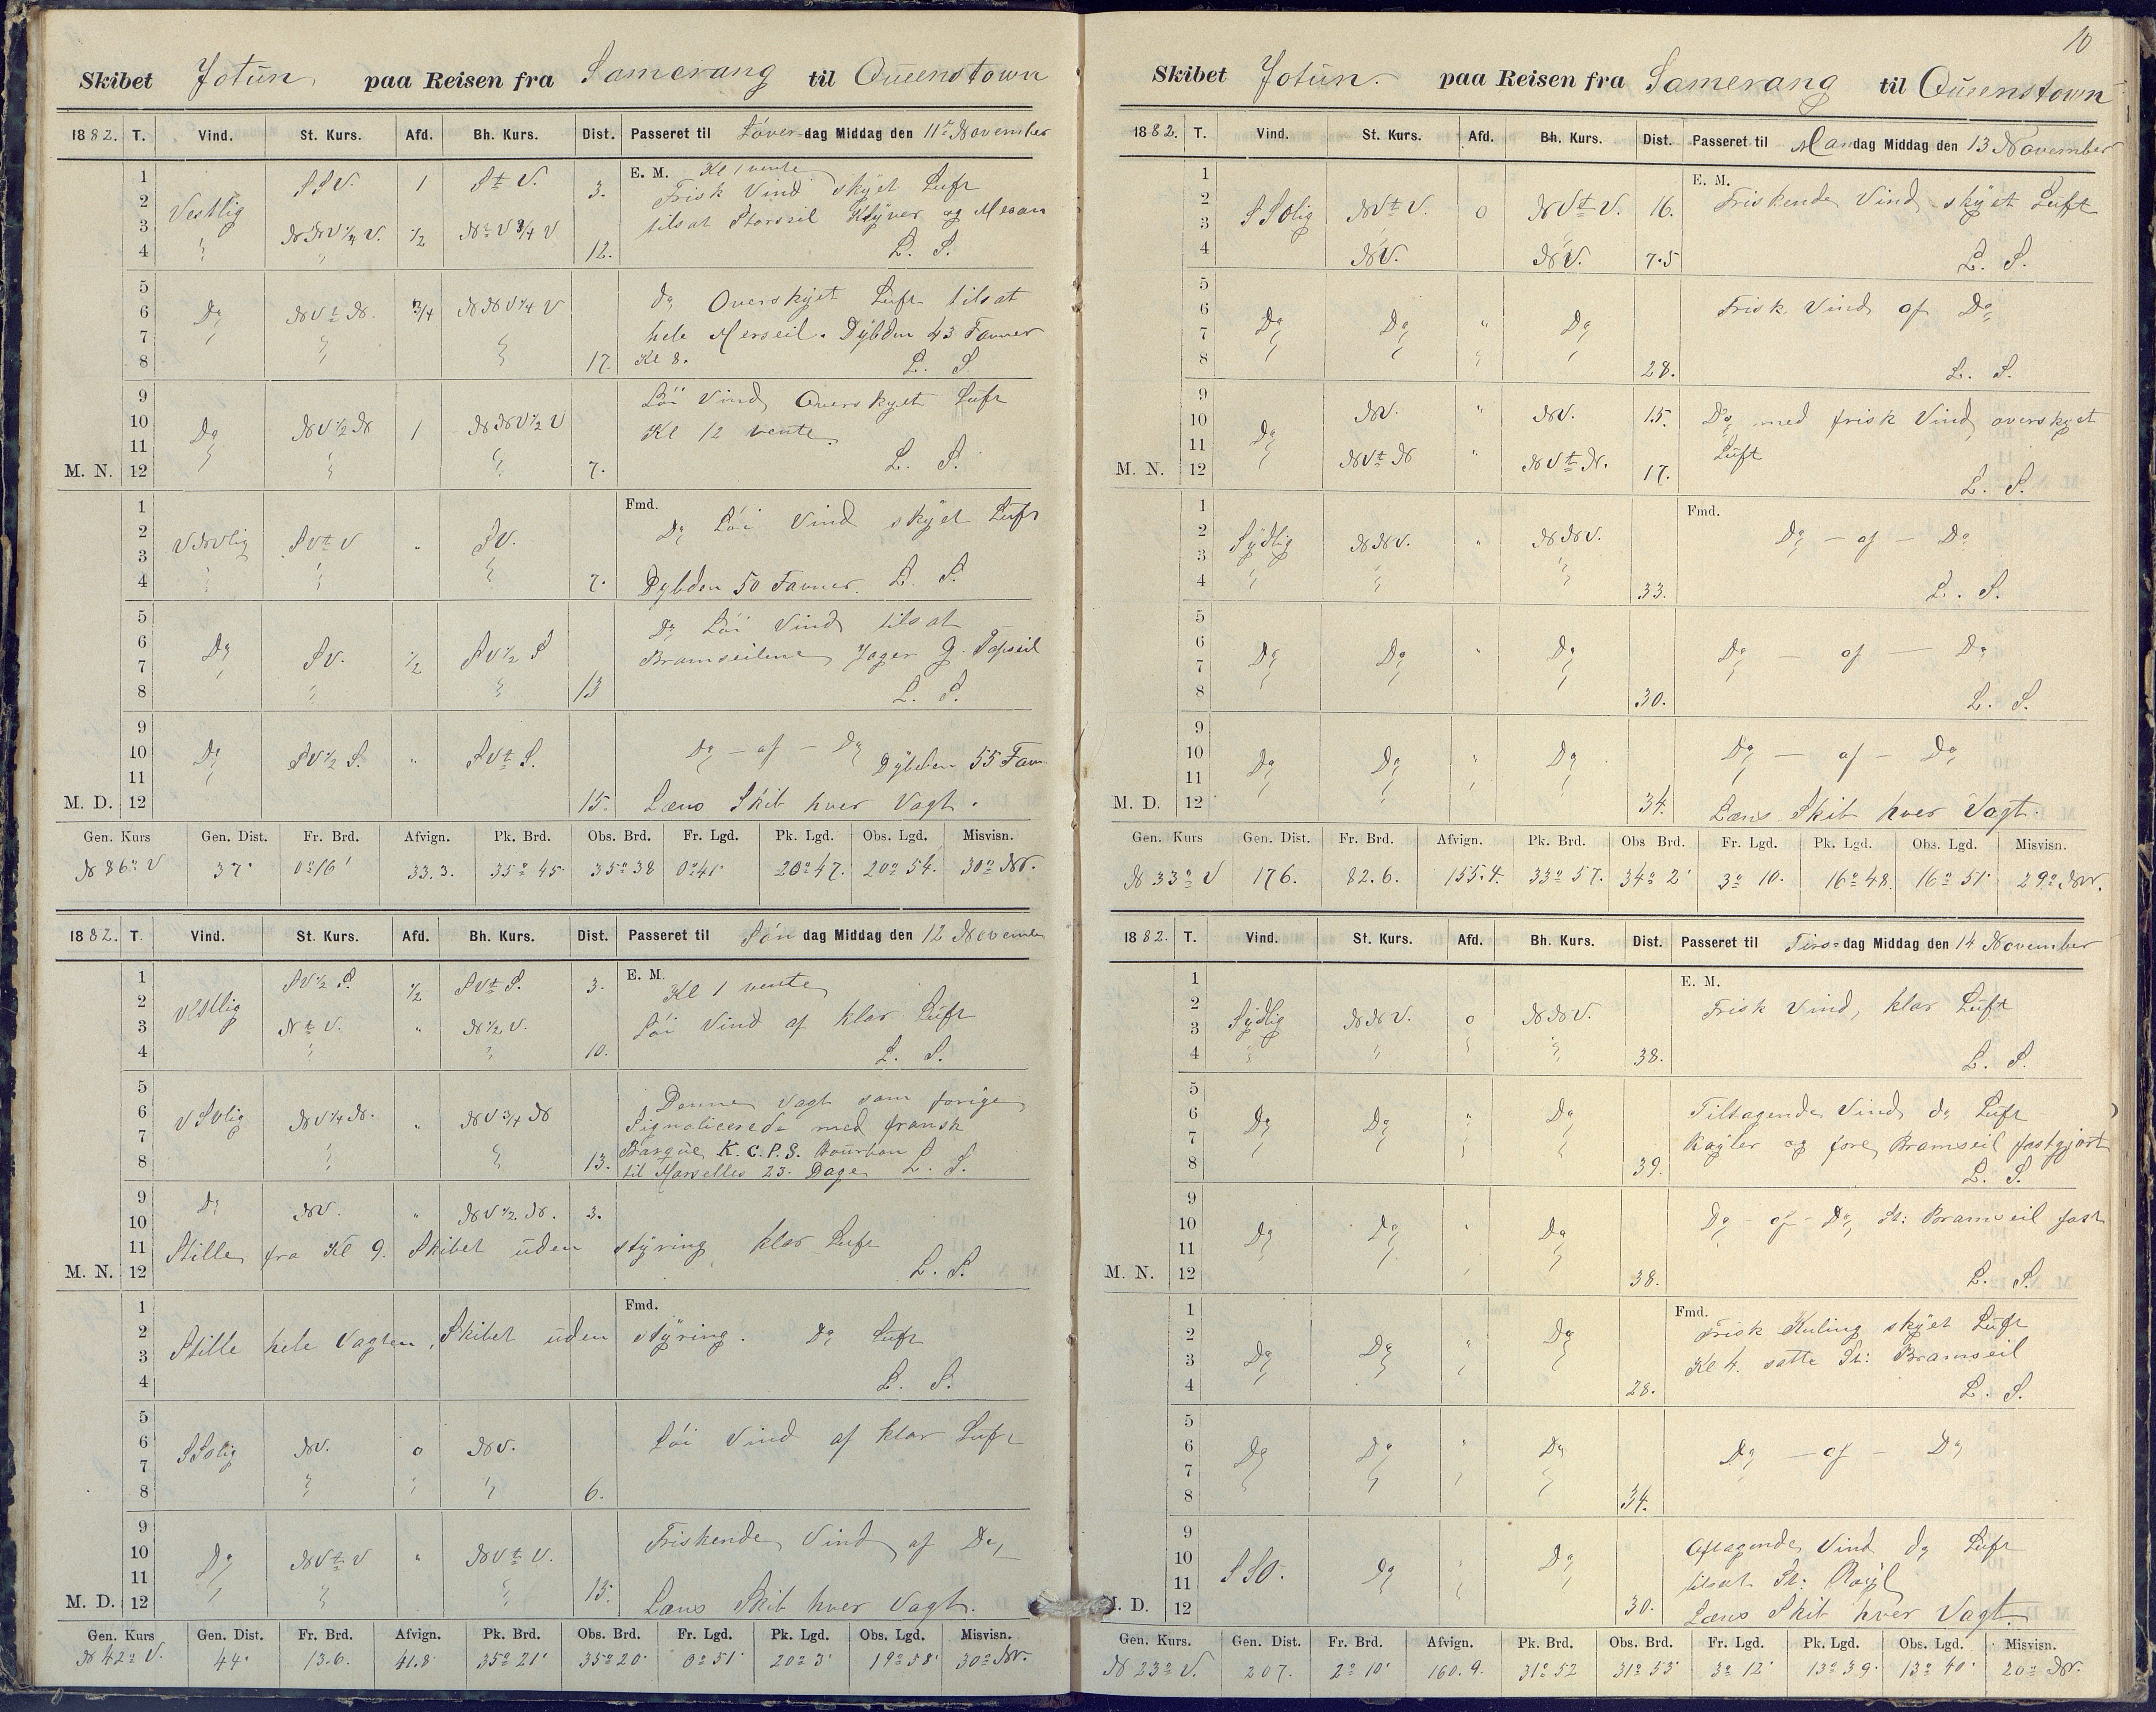 Skibet Jotun paa Reisen fra Samerang til Queenstown
1882. T. Vind. St. Kurs. Afd. Bh. Kurs. Dist. Passeret til Löver dag Middag den 11te November
E. M. Kl 1 vente
1 SSV. 1 StV. 3. Frisk Vind skyet Luft
2 Vestlig
3 NNV 1/4 V. 1/2 NtV 3/4 V tilsat Storseil Klyver og Mesan
4 " " 12. L. S.
5 Do Overskyet Luft tilsat
6 Do NVtN. 3/4 NNV 1/4 V
7 hele Merseil. Dybden 43 Favner
8 17. Kl 8. L. S.
9 Löi Vind Overskyet Luft
10 Do NV 1/2 N 1 NNV 1/2 V Kl 12 vente
11
M. N. 12 7. L. S.
Fmd.
1 Do Löi Vind skyet Luft
2 VNVlig SVtV " SV.
3
4 7. Dybden 50 Favner. L. S.
5 Do Löi Vind tilsat
6 Do SV. 1/2 SV 1/2 S Bramseilene Jager G. Topseil
7
8 13 L. S.
9
10 Do SV 1/2 S. " SVtS. Do - af - Do Dybden 55 Fav
11
M. D. 12 15. Læns Skib hver Vagt.
Gen. Kurs Gen. Dist. Fr. Brd. Afvign. Pk. Brd. Obs. Brd. Fr. Lgd. Pk. Lgd. Obs. Lgd. Misvisn.
N 86° V 37' 0° 16' 33.3. 35° 45' 35° 38 0° 41' 20° 47. 20° 54. 30° NV.
1882. T. Vind. St. Kurs. Afd. Bh. Kurs. Dist. Passeret til Sön dag Middag den 12 November
E. M.
1 SV 1/2 S. 1/2 SVtS. 3. Kl 1 vente
2 Vestlig
3 NtV. " N 1/2 V. Löi Vind af klar Luft
4 10. L. S.
5 Denne Vagt som forige
6 VSVlig NV 1/4 N. " NV 3/4 N Signaliserede med fransk
7 Barque K.C.P.S. Bourbon
8 13. til Marselles 23. Dage L. S.
9 Do NV. " NV 1/2 N. 3.
10
11 Stille fra Kl 9. Skibet uden styring klar Luft
M. N. 12 L. S.
Fmd.
1
2 Stille hele Vagten, Skibet uden styring. Do Luft
3
4 L. S.
5
6 SSOlig NV. 0 NV. Löi Vind af klar Luft
7
8 6.
9 Friskende Vind af Do
10 Do NVtV " NVtV.
11
M. D. 12 15. Læns Skib hver Vagt.
Gen. Kurs Gen. Dist. Fr. Brd. Afvign. Pk. Brd. Obs. Brd. Fr. Lgd. Pk. Lgd. Obs. Lgd. Misvisn.
N 42° V. 44' 13.6. 41.8 35° 21' 35° 20' 0° 51' 20° 3' 19° 58' 30° NV.
10
Skibet Jotun. paa Reisen fra Samerang til Queenstown
1882. T. Vind. St. Kurs. Afd. Bh. Kurs. Dist. Passeret til Mandag Middag den 13 November
E. M.
1 Friskende Vind skyet Luft
2 SSOlig NVtV. 0 NVtV. 16.
3
4 NV. NV. 7.5 L. S.
5
6 Do Do " Do Frisk Vind af Do
7
8 28. L. S.
9
10 Do NV. " NV. 15. Do med frisk Vind overskyet
11 Luft
M. N. 12 NVtN " NVtN. 17. L. S.
Fmd.
1
2 Sydlig NNV. " NNV. Do - af - Do
3
4 33. L. S.
5
6 Do Do " Do Do - af - Do
7
8 30. L. S.
9
10 Do Do Do Do - af - Do
11
M. D. 12 34. Læns Skib hver Vagt.
Gen. Kurs Gen. Dist. Fr. Brd. Afvign. Pk. Brd. Obs Brd. Fr. Lgd. Pk. Lgd. Obs. Lgd. Misvisn.
N 33° V 176. 82.6. 155.4. 33° 57. 34° 2' 3° 10. 16° 48. 16° 51' 29° NV.
1882. T. Vind. St. Kurs. Afd. Bh. Kurs. Dist. Passeret til Tirs-dag Middag den 14 November
E. M.
1
2 Sydlig NNV. 0 NNV. Frisk Vind, klar Luft
3
4 38. L. S.
5
6 Do Do " Do Tiltagende Vind do Luft
7 Røgler og fore Bramseil fastgjort
8 39. L. S.
9
10 Do Do " Do Do - af - Do, St: Bramseil fast
11
M. N. 12 38. L. S.
Fmd.
1 Frisk Kuling skyet Luft
2 Do Do " Do
3 Kl 4. satte St: Bramseil
4 28. L. S.
5
6 Do Do " Do Do - af - Do
7
8 34.
9
10 SSO. Do Do Aftagende Vind do Luft
11 tilsat St: Røgl
M. D. 12 30. Læns Skib hver Vagt.
Gen. Kurs. Gen. Dist. Fr. Brd. Afvign. Pk. Brd Obs. Brd. Fr. Lgd. Pk. Lgd. Obs. Lgd. Misvisn.
N 23° V. 207. 2° 10' 160.9. 31° 52 31° 53' 3° 12' 13° 39' 13° 40' 20° NV.